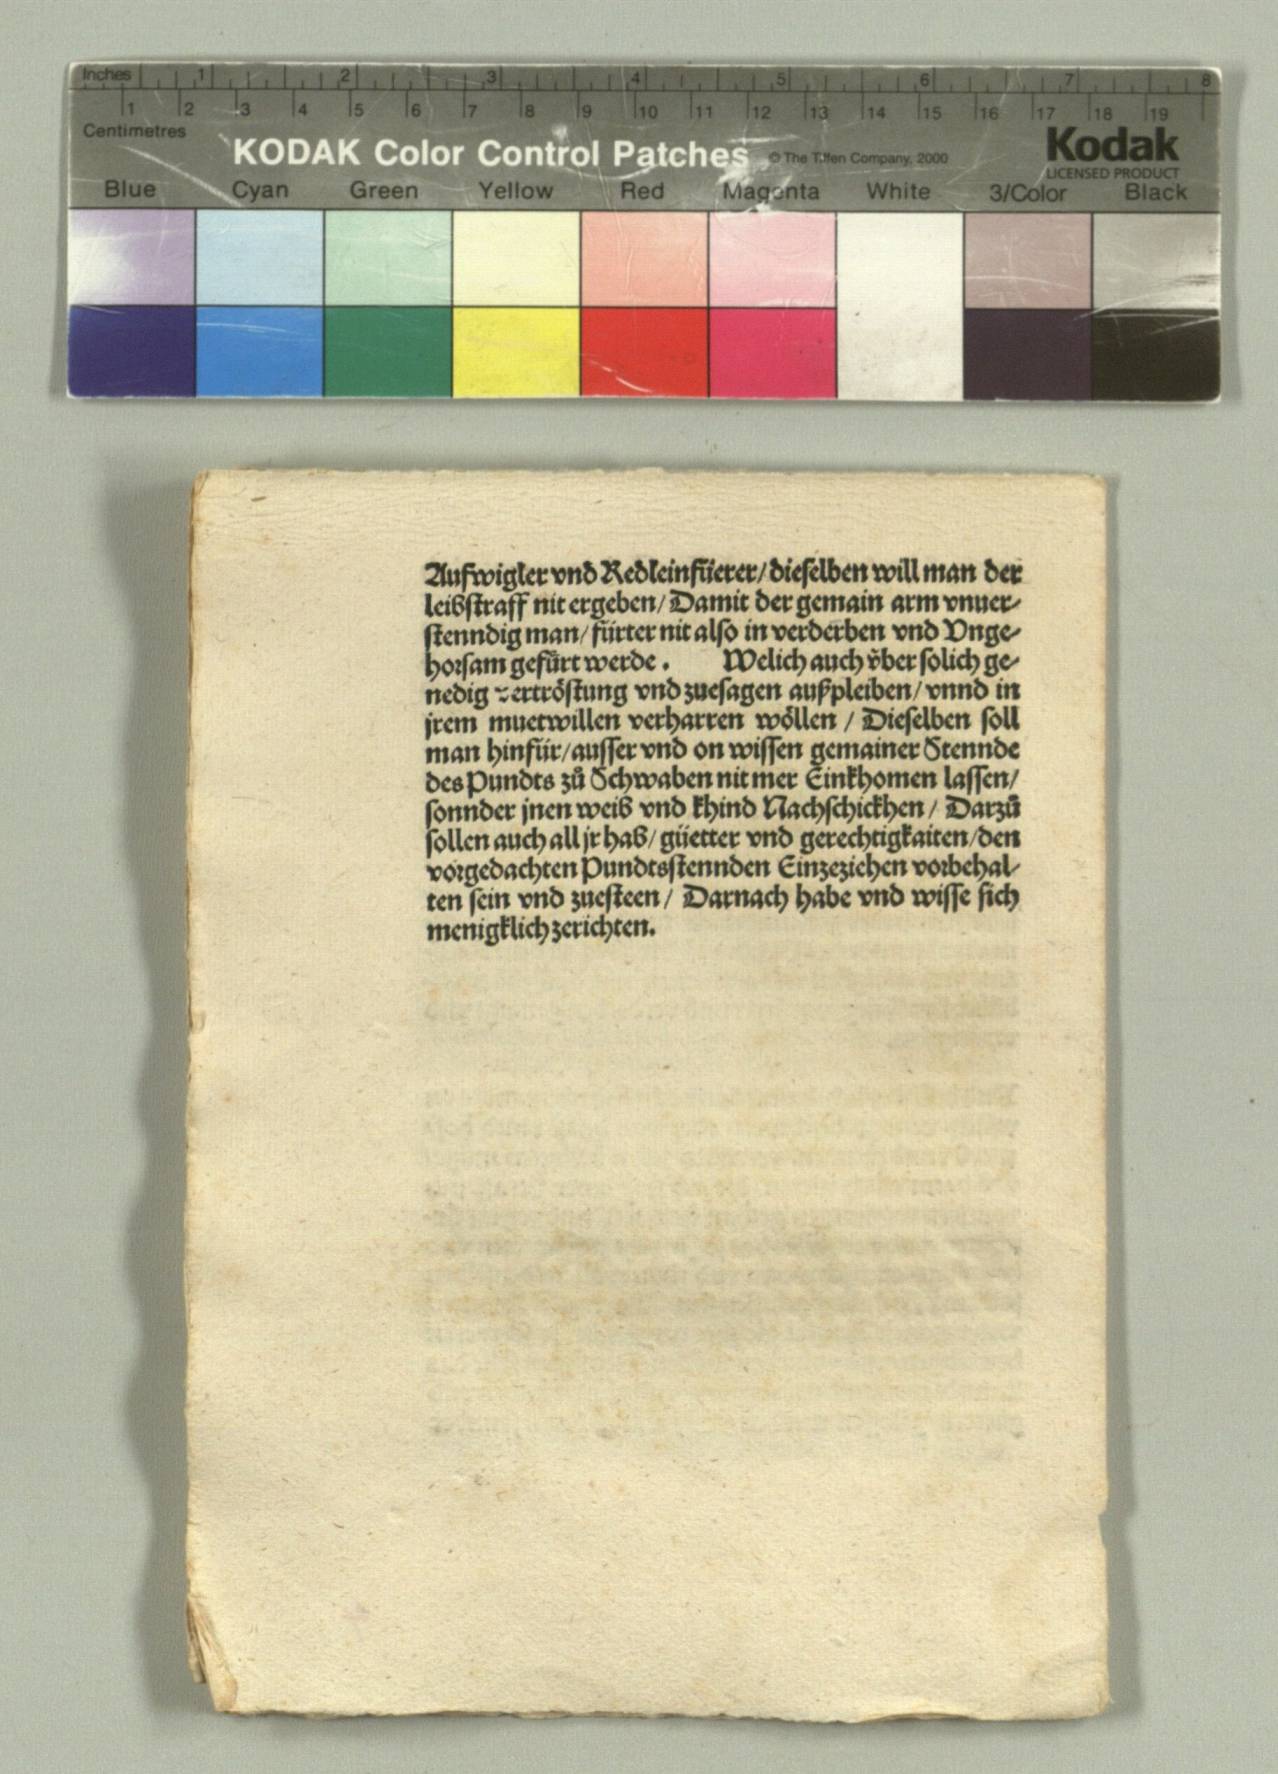 Inches 1 2 3 4 5 6 7 8
1 2 3 4 5 6 7 8 9 10 11 12 13 14 15 16 17 18 19
Centimetres
KODAK Color Control Patches © The Tiffen Company, 2000 Kodak
LICENSED PRODUCT
Blue Cyan Green Yellow Red Magenta White 3/Color Black
Aufwigler vnd Redleinfüerer/ dieselben will man der
leibstraff nit ergeben/ Damit der gemain arm vnuer-
stenndig man/ fürter nit also in verderben vnd Vnge-
horsam gefürt werde. Welich auch vͤber solich ge-
nedig vertröstung vnd zuesagen außpleiben/ vnnd in
jrem muetwillen verharren wöllen / Dieselben soll
man hinfür/ ausser vnd on wissen gemainer Stennde
des Pundts zů Schwaben nit mer Einkhomen lassen/
sonnder jnen weib vnd khind Nachschickhen / Darzů
sollen auch all jr hab/ güetter vnd gerechtigkaiten/ den
vorgedachten Pundtsstennden Einzeziehen vorbehal-
ten sein vnd zuesteen / Darnach habe vnd wisse sich
menigklich zerichten.